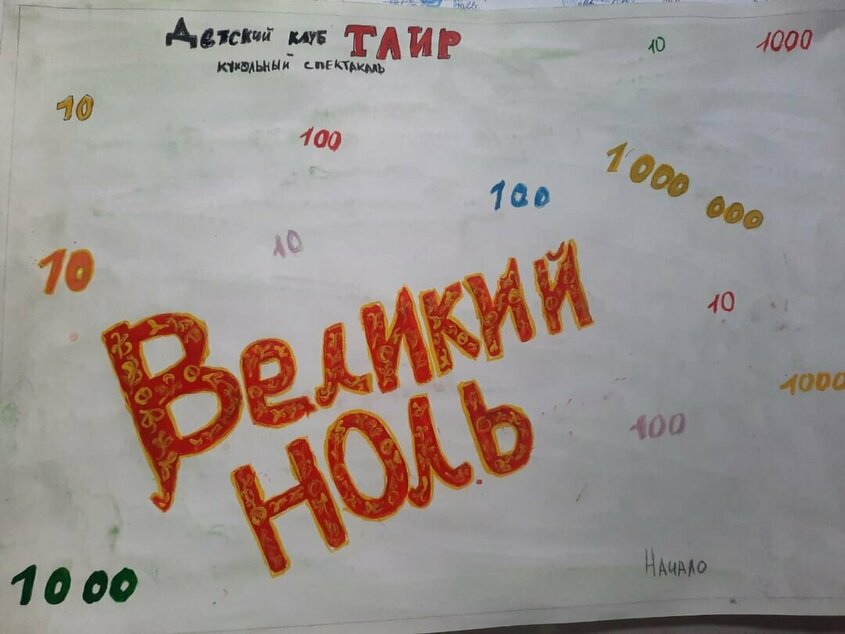 Детский клуб ТАИР
кукольный спектакль
10
1000
10
100
1000 000
100
10
10
10
Великий
1000
ноль
100
1000
Начало